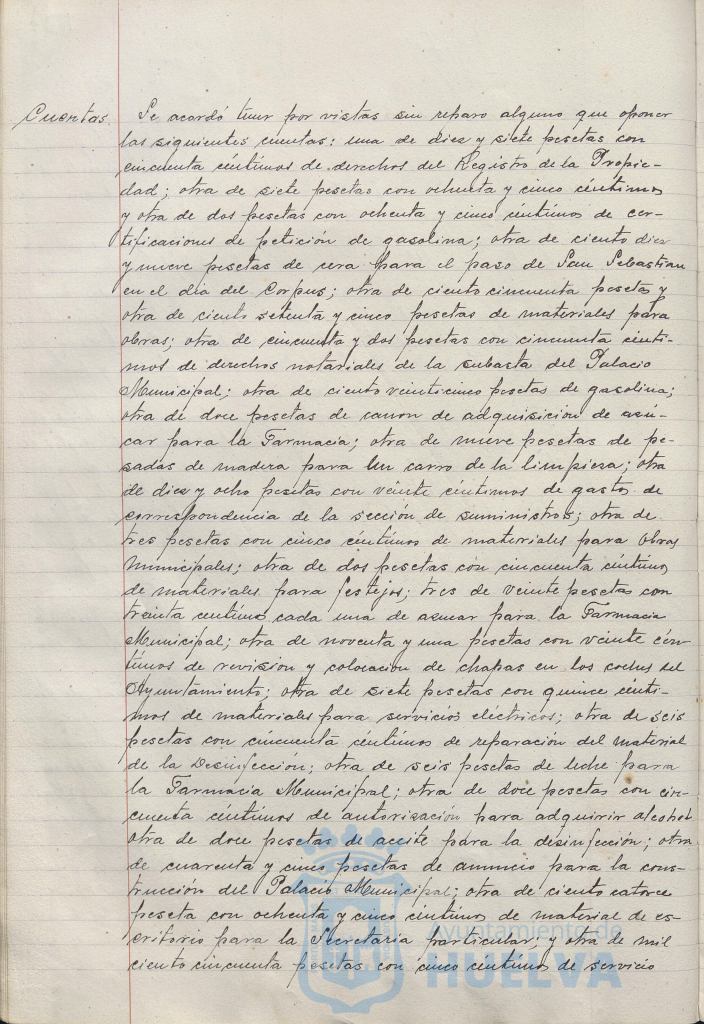 Cuentas.
Se acordó tener por vistas sin reparo alguno que oponer
las siguientes cuentas: una de diez y siete pesetas con
cincuenta céntimos de derechos del Registro de la Propie-
dad; otra de siete pesetas con ochenta y cinco céntimos
y otra de dos pesetas con ochenta y cinco céntimos de cer-
tificaciones de petición de gasolina; otra de ciento diez
y nueve pesetas de cera para el paso de San Sebastian
en el dia del Corpus; otra de ciento cincuenta pesetas y
otra de ciento setenta y cinco pesetas de materiales para
obras; otra de cincuenta y dos pesetas con cincuenta cénti-
mos de derechos notariales de la subasta del Palacio
Municipal; otra de ciento veinticinco pesetas de gasolina;
otra de doce pesetas de canon de adquisición de azú-
car para la Farmacia; otra de nueve pesetas de pe-
sadas de madera para un carro de la limpieza; otra
de diez y ocho pesetas con veinte céntimos de gastos de
correspondencia de la sección de suministros; otra de
tres pesetas con cinco céntimos de materiales para obras
municipales; otra de dos pesetas con cincuenta céntimos
de materiales para festejos; tres de veinte pesetas con
treinta centimos cada una de azucar para la Farmacia
Municipal; otra de noventa y una pesetas con veinte cén-
timos de revision y colocacion de chapas en los coches del
Ayuntamiento; otra de siete pesetas con quince cénti-
mos de materiales para servicios eléctricos; otra de seis
pesetas con cincuenta céntimos de reparación del material
de la Desinfección; otra de seis pesetas de leche para
la Farmacia Municipal; otra de doce pesetas con cin-
cuenta céntimos de autorización para adquirir alcohol
otra de doce pesetas de aceite para la desinfección; otra
de cuarenta y cinco pesetas de anuncio para la cons-
trucción del Palacio Municipal; otra de ciento catorce
peseta con ochenta y cinco céntimos de material de es-
critorio para la Secretaria particular; y otra de mil
ciento cincuenta pesetas con cinco céntimos de servicio
Ayuntamiento de
HUELVA